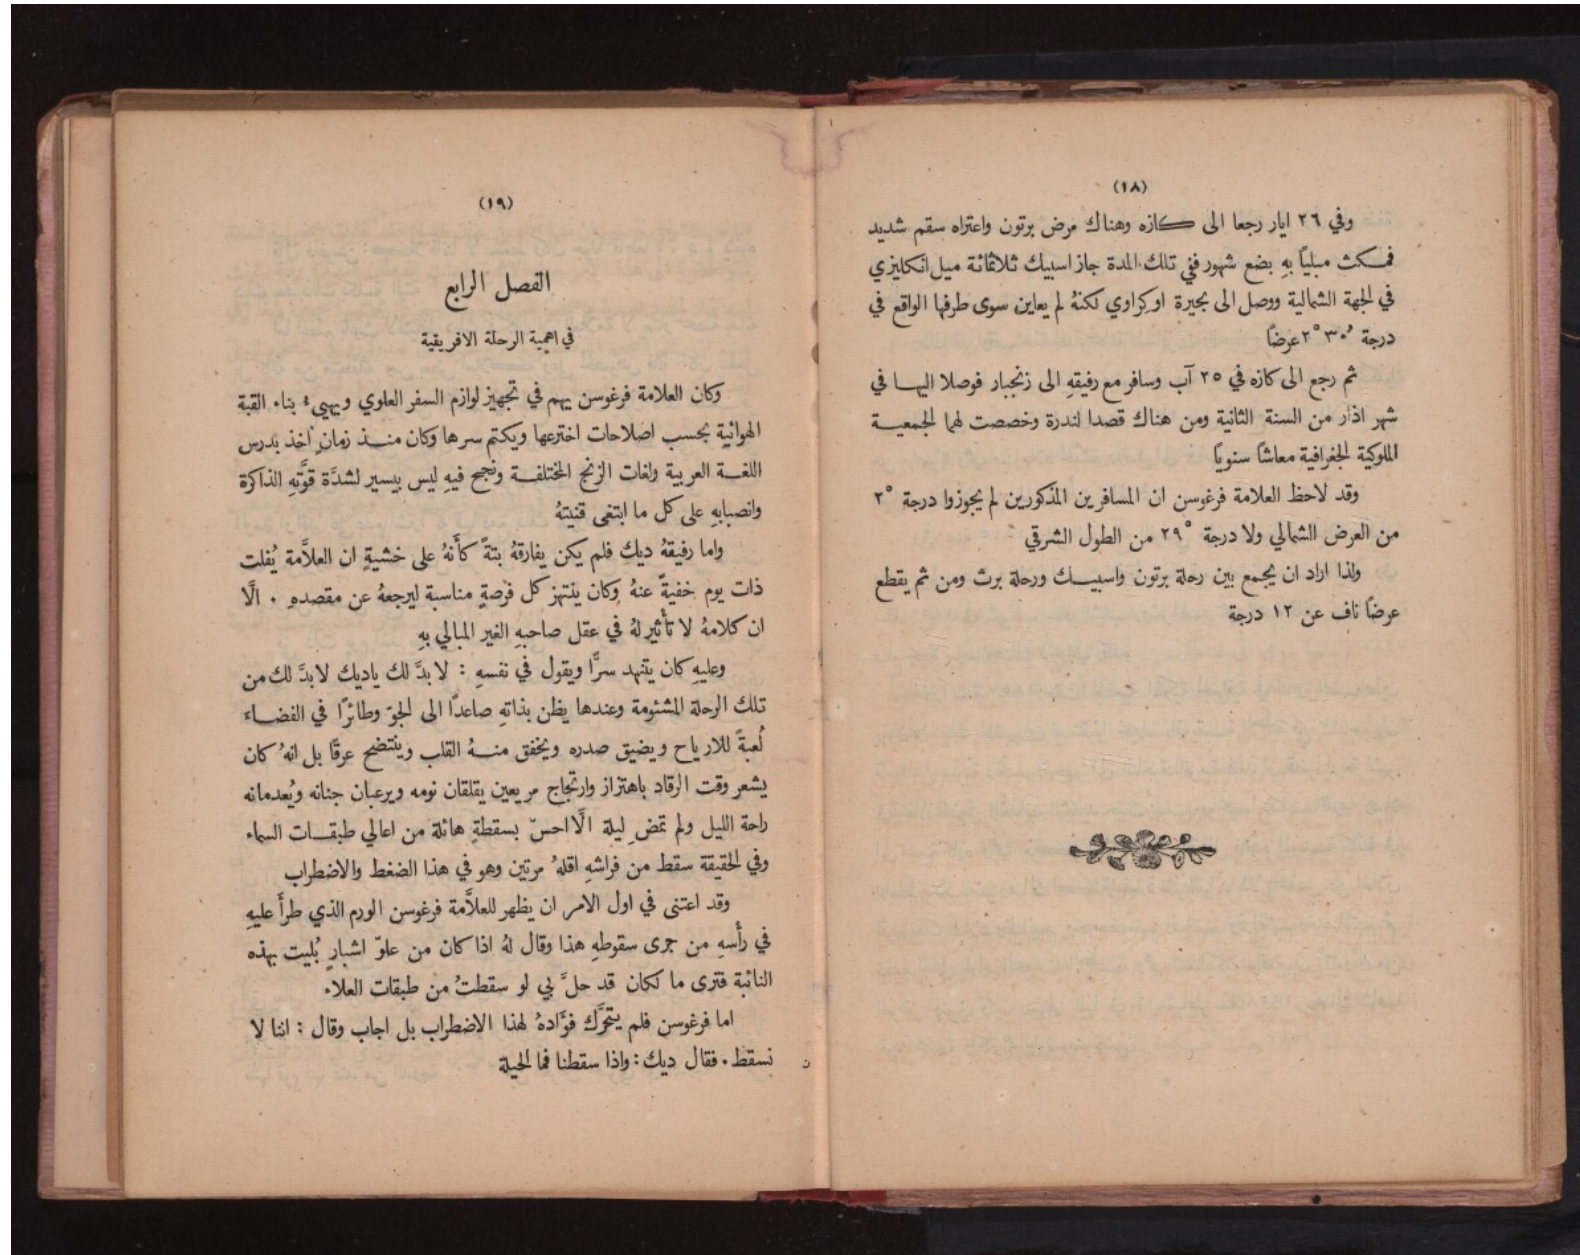 (١٨)
وفي ٢٦ ايار رجعا الى كازه وهناك مرض برتون واعتراه سقم شديد
فمكث مبليًا بهِ بضع شهور ففي تلك المدة جاز اسبيك ثلاثمائة ميل انكليزي
في الجهة الشمالية ووصل الى بحيرة اوكراوي لكنهُ لم يعاين سوى طرفها الواقع في
درجة ٣٠َ ٢° عرضًا
ثم رجع الى كازه في ٢٥ آب وسافر مع رفيقهِ الى زنجبار فوصلا اليها في
شهر اذار من السنة الثانية ومن هناك قصدا لندرة وخصصت لهما الجمعية
الملوكية الجغرافية معاشًا سنويًا
وقد لاحظ العلامة فرغوسن ان المسافرين المذكورين لم يجوزوا درجة ٢°
من العرض الشمالي ولا درجة ٢٩° من الطول الشرقي
ولذا اراد ان يجمع بين رحلة برتون واسبيك ورحلة برث ومن ثم يقطع
عرضًا ناف عن ١٢ درجة
(١٩)
الفصل الرابع
في اهمية الرحلة الافريقية
وكان العلامة فرغوسن يهم في تجهيز لوازم السفر العلوي ويهيء بناء القبة
الهوائية بحسب اصلاحات اخترعها ويكتم سرها وكان منذ زمانٍ اخذ بدرس
اللغة العربية ولغات الزنج المختلفة ونجح فيهِ ليس بيسير لشدَّة قوَّتهِ الذاكرة
وانصبابهِ على كل ما ابتغى قنيتهُ
واما رفيقهُ ديك فلم يكن يفارقهُ بتةً كأَنهُ على خشيةٍ ان العلاَّمة يُفلت
ذات يوم خفيةً عنهُ وكان ينتهز كل فرصةٍ مناسبة ليرجعهُ عن مقصدهِ . الَّا
ان كلامهُ لا تأْثير لهُ في عقل صاحبهِ الغير المبالي بهِ
وعليهِ كان يتنهد سرًّا ويقول في نفسهِ : لا بدَّ لك ياديك لا بدَّ لك من
تلك الرحلة المشئومة وعندها يظن بذاتهِ صاعدًا الى الجوّ وطائرًا في الفضاء
لُعبةً للارياح ويضيق صدره ويخفق منهُ القلب وينتضح عرقًا بل انهُ كان
يشعر وقت الرقاد باهتزاز وارتجاج مريعين يقلقان نومه ويرعبان جنانه ويُعدمانه
راحة الليل ولم تمضِ ليلة الَّا احسّ بسقطةٍ هائلة من اعالي طبقات السماء
وفي الحقيقة سقط من فراشهِ اقلهُ مرتين وهو في هذا الضغط والاضطراب
وقد اعتنى في اول الامر ان يظهر للعلاَّمة فرغوسن الورم الذي طرأَ عليهِ
في رأْسهِ من جرى سقوطهِ هذا وقال لهُ اذا كان من علوّ اشبارٍ بُليت بهذه
النائبة فترى ما لكان قد حلَّ بي لو سقطتُ من طبقات العلاء
اما فرغوسن فلم يتحرَّك فوَّادهُ لهذا الاضطراب بل اجاب وقال : اننا لا
نسقط . فقال ديك : واذا سقطنا فما الحيلة